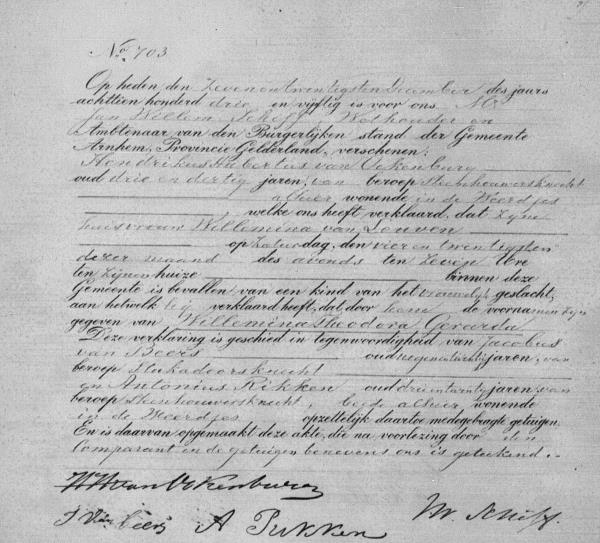 No. 703
Op heden den Zevenentwintigsten December des jaars
achttien honderd drie en vijftig is voor ons Mr
Jan Willem Schiff, Wethouder en
Ambtenaar van den Burgerlijken stand der Gemeente
Arnhem, Provincie Gelderland, verschenen:
Hendrikus Hubertus van Valkenburg
oud drie en dertig jaren, van beroep Steenhouwersknecht
alhier wonende in de Weerdjes
, welke ons heeft verklaard, dat Zijne
huisvrouw Willemina van Leuven
op Zaturdag, den vier en twentigsten
dezer maand des avonds ten Zeven Ure
ten Zijnen huize binnen deze
Gemeente is bevallen van een kind van het vrouwelijk geslacht,
aan hetwelk hij verklaard heeft, dat, door hem de voornamen zijn
gegeven van Willemina Theodora Gerarda
Deze verklaring is geschied in tegenwoordigheid van Jacobus
van Beers oud negenentwintig jaren, van
beroep Stukadoorsknecht
en Antonius Rikken oud drieentwintig jaren van
beroep Steenhouwersknecht, beide alhier, wonende
in de Weerdjes opzettelijk daartoe medegebragte getuigen.
En is daarvan opgemaakt deze akte, die na voorlezing door den
Comparant en de getuigen benevens ons is geteekend.
A Rikken
W. Schiff